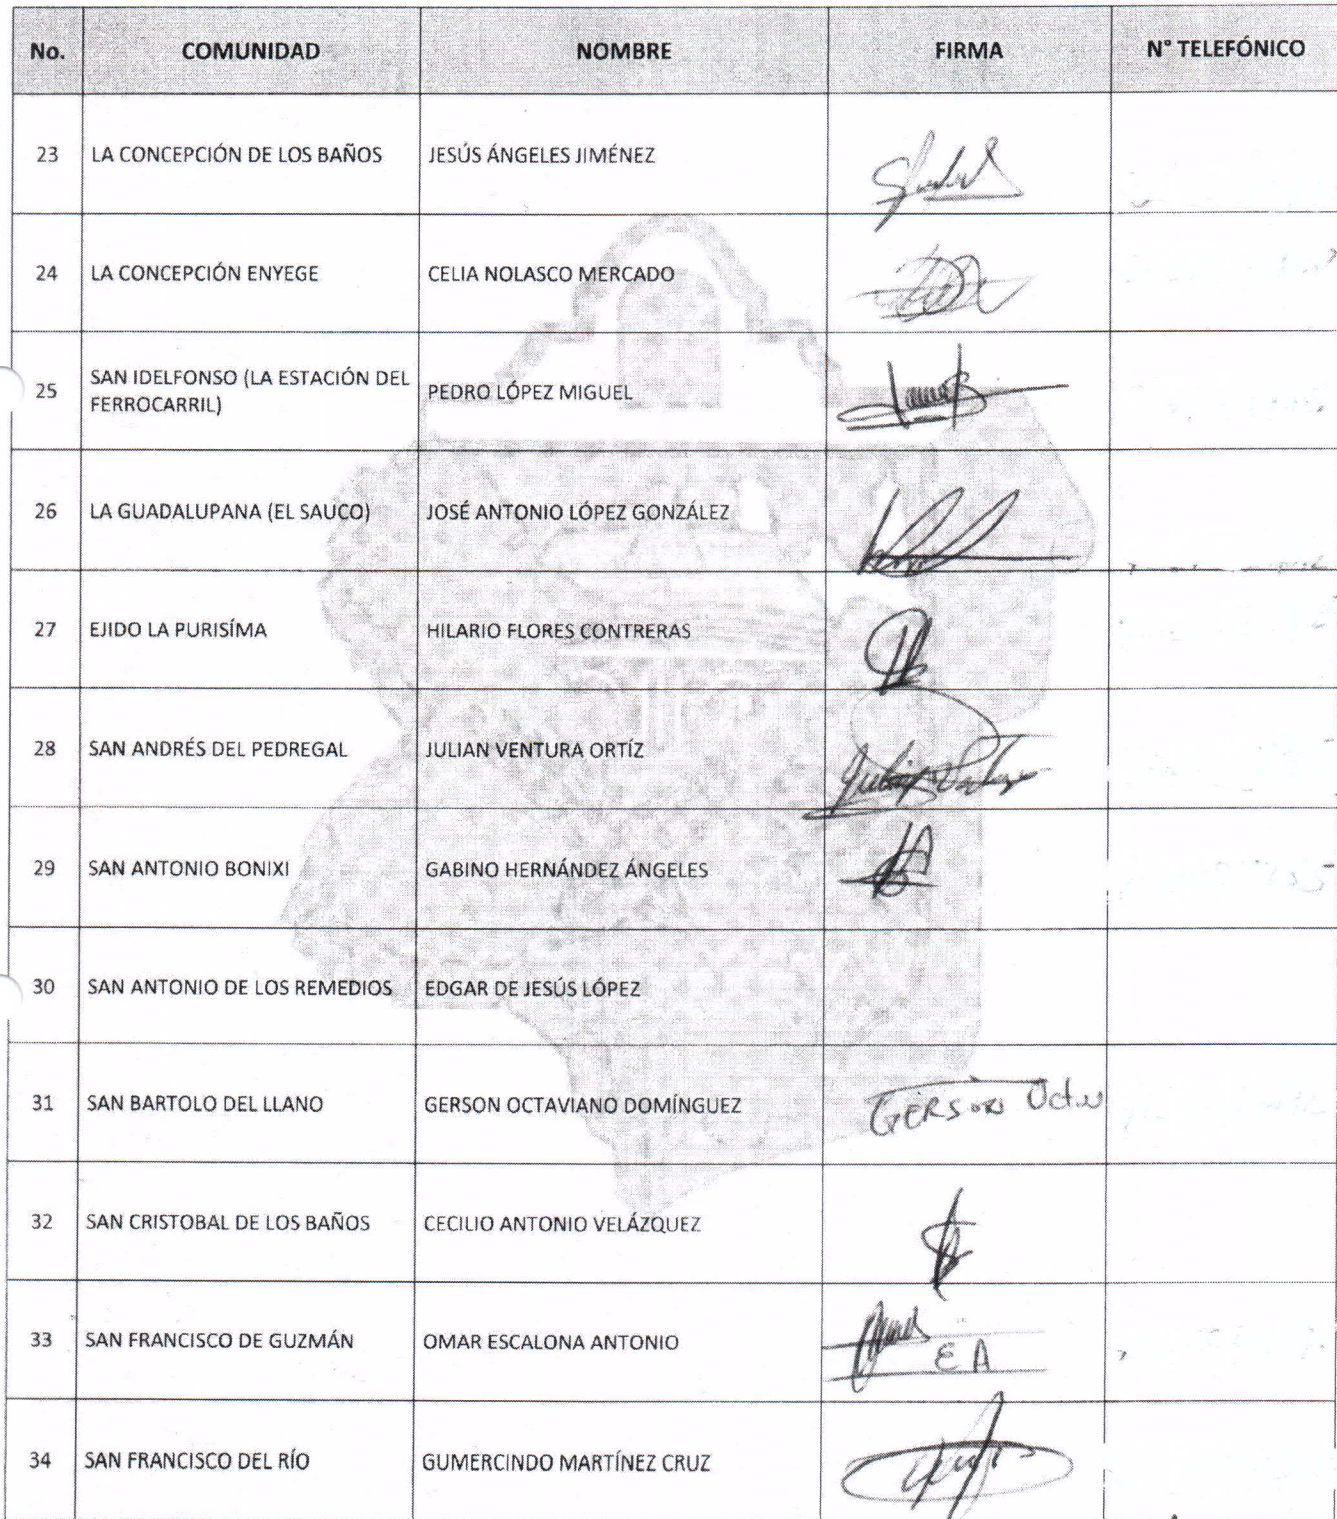 No. COMUNIDAD NOMBRE FIRMA N° TELEFÓNICO
23 LA CONCEPCIÓN DE LOS BAÑOS JESÚS ÁNGELES JIMÉNEZ
24 LA CONCEPCIÓN ENYEGE CELIA NOLASCO MERCADO
25 SAN IDELFONSO (LA ESTACIÓN DEL
FERROCARRIL) PEDRO LÓPEZ MIGUEL
26 LA GUADALUPANA (EL SAUCO) JOSÉ ANTONIO LÓPEZ GONZÁLEZ
27 EJIDO LA PURISÍMA HILARIO FLORES CONTRERAS
28 SAN ANDRÉS DEL PEDREGAL JULIAN VENTURA ORTÍZ
29 SAN ANTONIO BONIXI GABINO HERNÁNDEZ ÁNGELES
30 SAN ANTONIO DE LOS REMEDIOS EDGAR DE JESÚS LÓPEZ
31 SAN BARTOLO DEL LLANO GERSON OCTAVIANO DOMÍNGUEZ GERSON
32 SAN CRISTOBAL DE LOS BAÑOS CECILIO ANTONIO VELÁZQUEZ
33 SAN FRANCISCO DE GUZMÁN OMAR ESCALONA ANTONIO E A
34 SAN FRANCISCO DEL RÍO GUMERCINDO MARTÍNEZ CRUZ